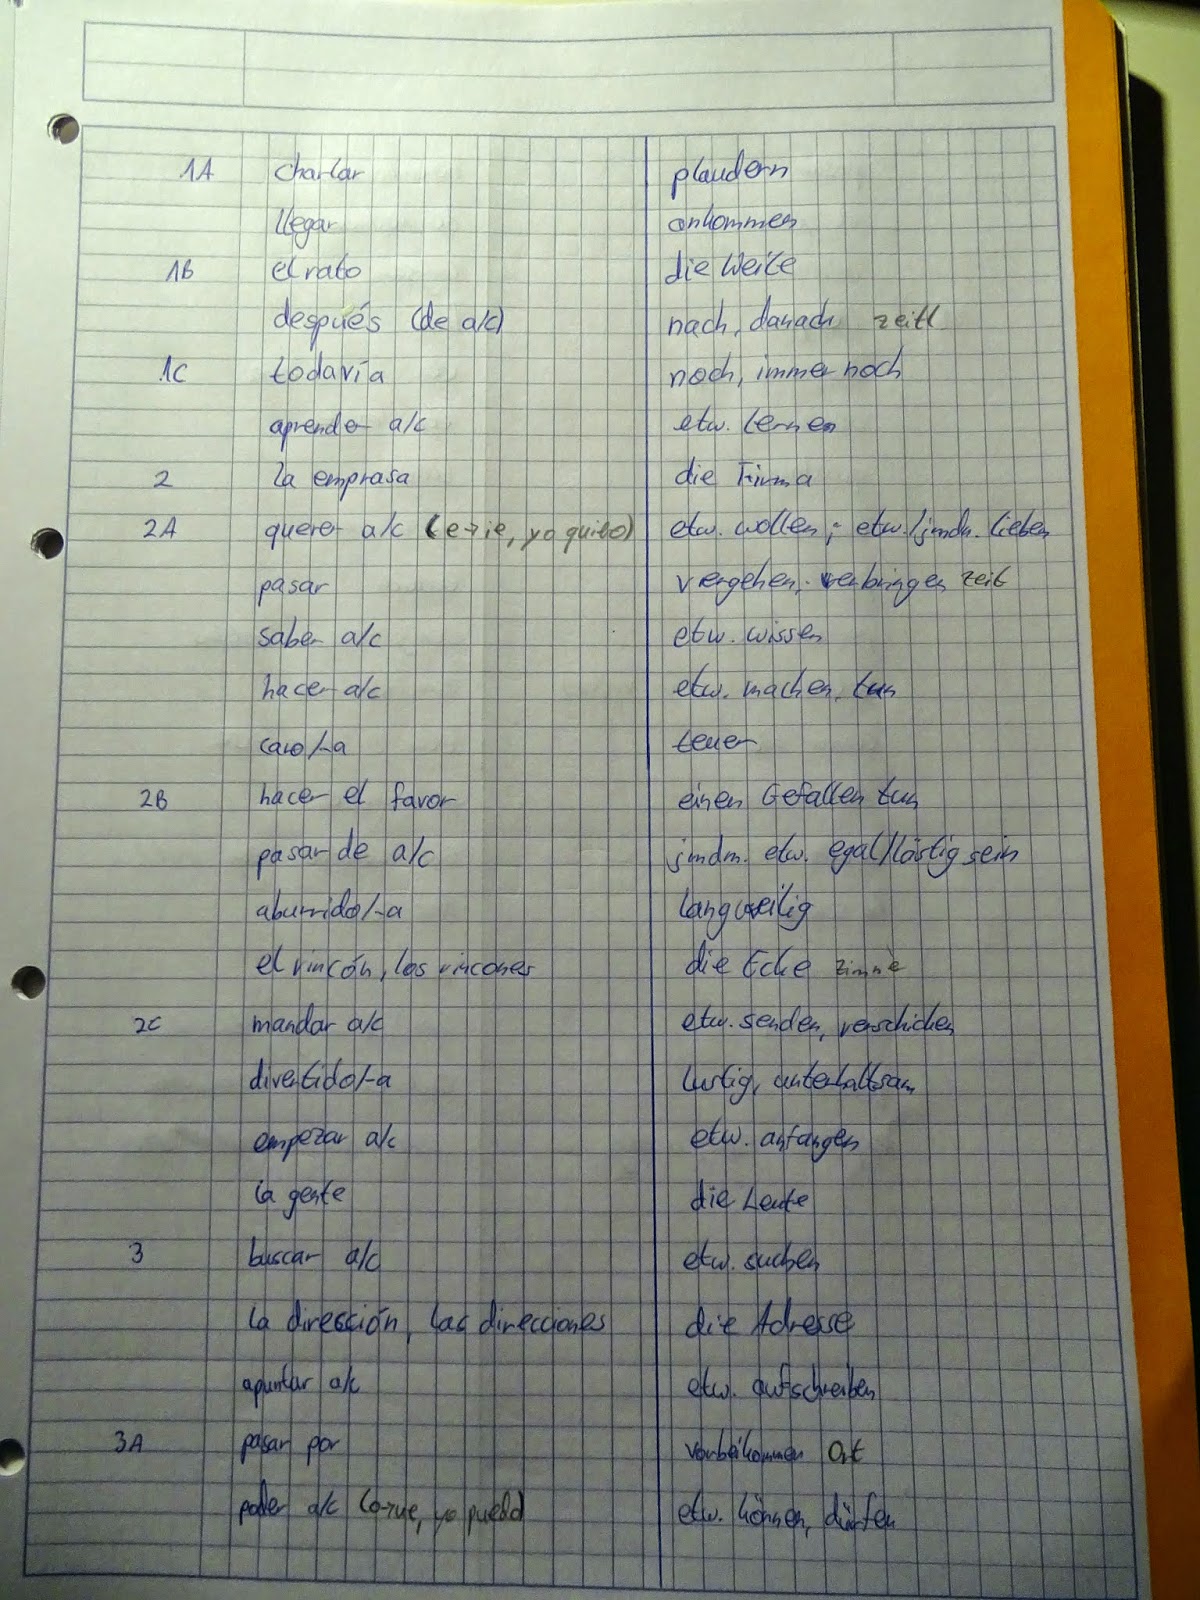 1A charlar plaudern
llegar ankommen
1B el rato die Weile
después (de a/c) nach, danach zeitl
1C todavía noch, immer noch
aprender a/c etw. lernen
2 la emprasa die Firma
2A querer a/c (e→ie, yo quiero) etw. wollen; etw./jmdn. lieben
pasar vergehen; verbringen zeit
saber a/c etw. wissen
hacer a/c etw. machen, tun
caro/-a teuer
2B hacer el favor einen Gefallen tun
pasar de a/c jmdm. etw. egal/lästig sein
aburrido/-a langweilig
el rincón, los rincones die Ecke
2C mandar a/c etw. senden, verschicken
divertido/-a lustig, unterhaltsam
empezar a/c etw. anfangen
la gente die Leute
3 buscar a/c etw. suchen
la dirección, las direcciones die Adresse
apuntar a/c etw. aufschreiben
3A pasar por vorbeikommen Ort
poder a/c (o→ue, yo puedo) etw. können, dürfen